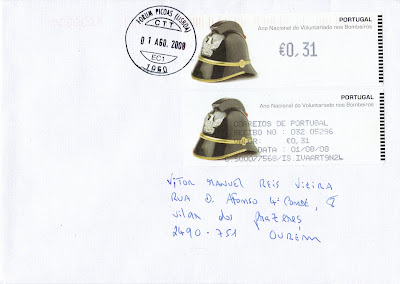 FORUM PICOAS (LISBOA)
CTT
01 AGO. 2008
EC1
7060
PORTUGAL
Ano Nacional do Voluntariado nos Bombeiros
€0,31
PORTUGAL
Ano Nacional do Voluntariado nos Bombeiros
CORREIOS DE PORTUGAL
RECIBO NO : 032 05296
€0,31
DATA : 01/08/08
VITOR MANUEL REIS VIEIRA
RUA D. AFONSO 4º CONDE,
VILAR DOS PRAZERES
2490-751
OURÉM